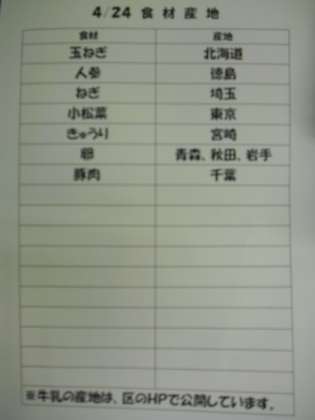 4/24 食材産地
食材 産地
玉ねぎ 北海道
人参 徳島
ねぎ 埼玉
小松菜 東京
きゅうり 宮崎
卵 青森、秋田、岩手
豚肉 千葉
※牛乳の産地は、区のHPで公開しています。